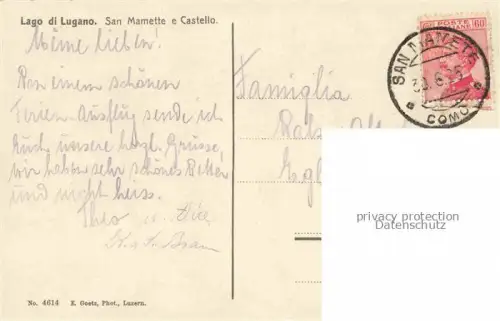 Lago di Lugano. San Mamette e Castello.
Meine lieben!
Von einem schönen
Ferien-Ausflug sende ich
Euch unsere herzl. Grüsse,
wir haben sehr schönes Wetter
und nicht heiss.
Theo u.
Famiglia
POSTE ITALIANE 60
SAN MAMETE
COMO
privacy protection
Dokumentenschutz
No. 4614 E. Goetz, Phot., Luzern.